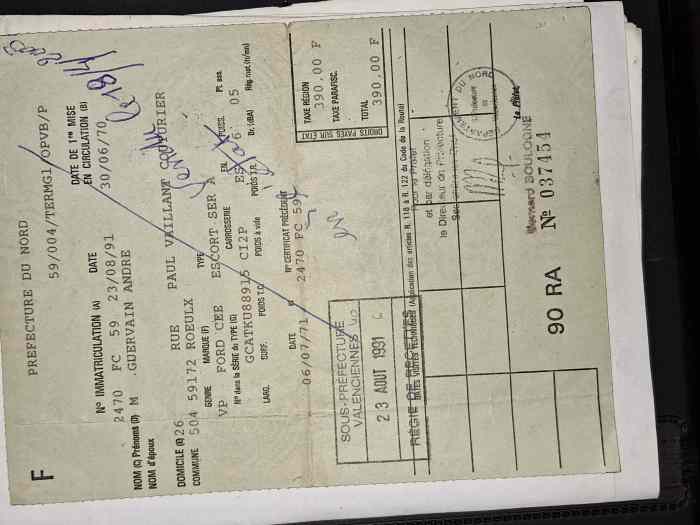 F
PREFECTURE DU NORD
59/004/TERMG1/OPVB/P
N° IMMATRICULATION (A)
DATE
DATE DE 1re MISE
EN CIRCULATION (B)
2470 FC 59 23/08/91
30/06/70
NOM (C) Prénoms (D) M .GUERVAIN ANDRE
NOM d'époux
DOMICILE (E) 26 RUE PAUL VAILLANT COUTURIER
COMMUNE 504 59172 ROEULX
GENRE MARQUE (F) TYPE
VP FORD CEE ESCORT SER A
N° dans la SÉRIE du TYPE (G) CARROSSERIE EN. PUISS. Pl. ass.
GCATKU88915 CI2P ES 6 05
LARG. SURF. POIDS T.C. POIDS à vide POIDS T.R. Dr. (dBA) Rég. mot. (tr/mn)
DATE N° CERTIFICAT PRÉCÉDENT
06/07/71 2470 FC 59
Vendu
le 18/
TAXE RÉGION
390.00 F
TAXE PARAFISC.
TOTAL
390.00 F
DROITS PAYÉS SUR ÉTAT
SOUS-PRÉFECTURE
VALENCIENNES
23 AOUT 1991
RÉGIE DE RECETTES
VISITES TECHNIQUES (Application des articles R. 118 à R. 122 du Code de la Route)
Pour le Préfet
et par délégation
le Directeur de Préfecture
DU NORD
Bernard BOULOGNE
90 RA N° 037454